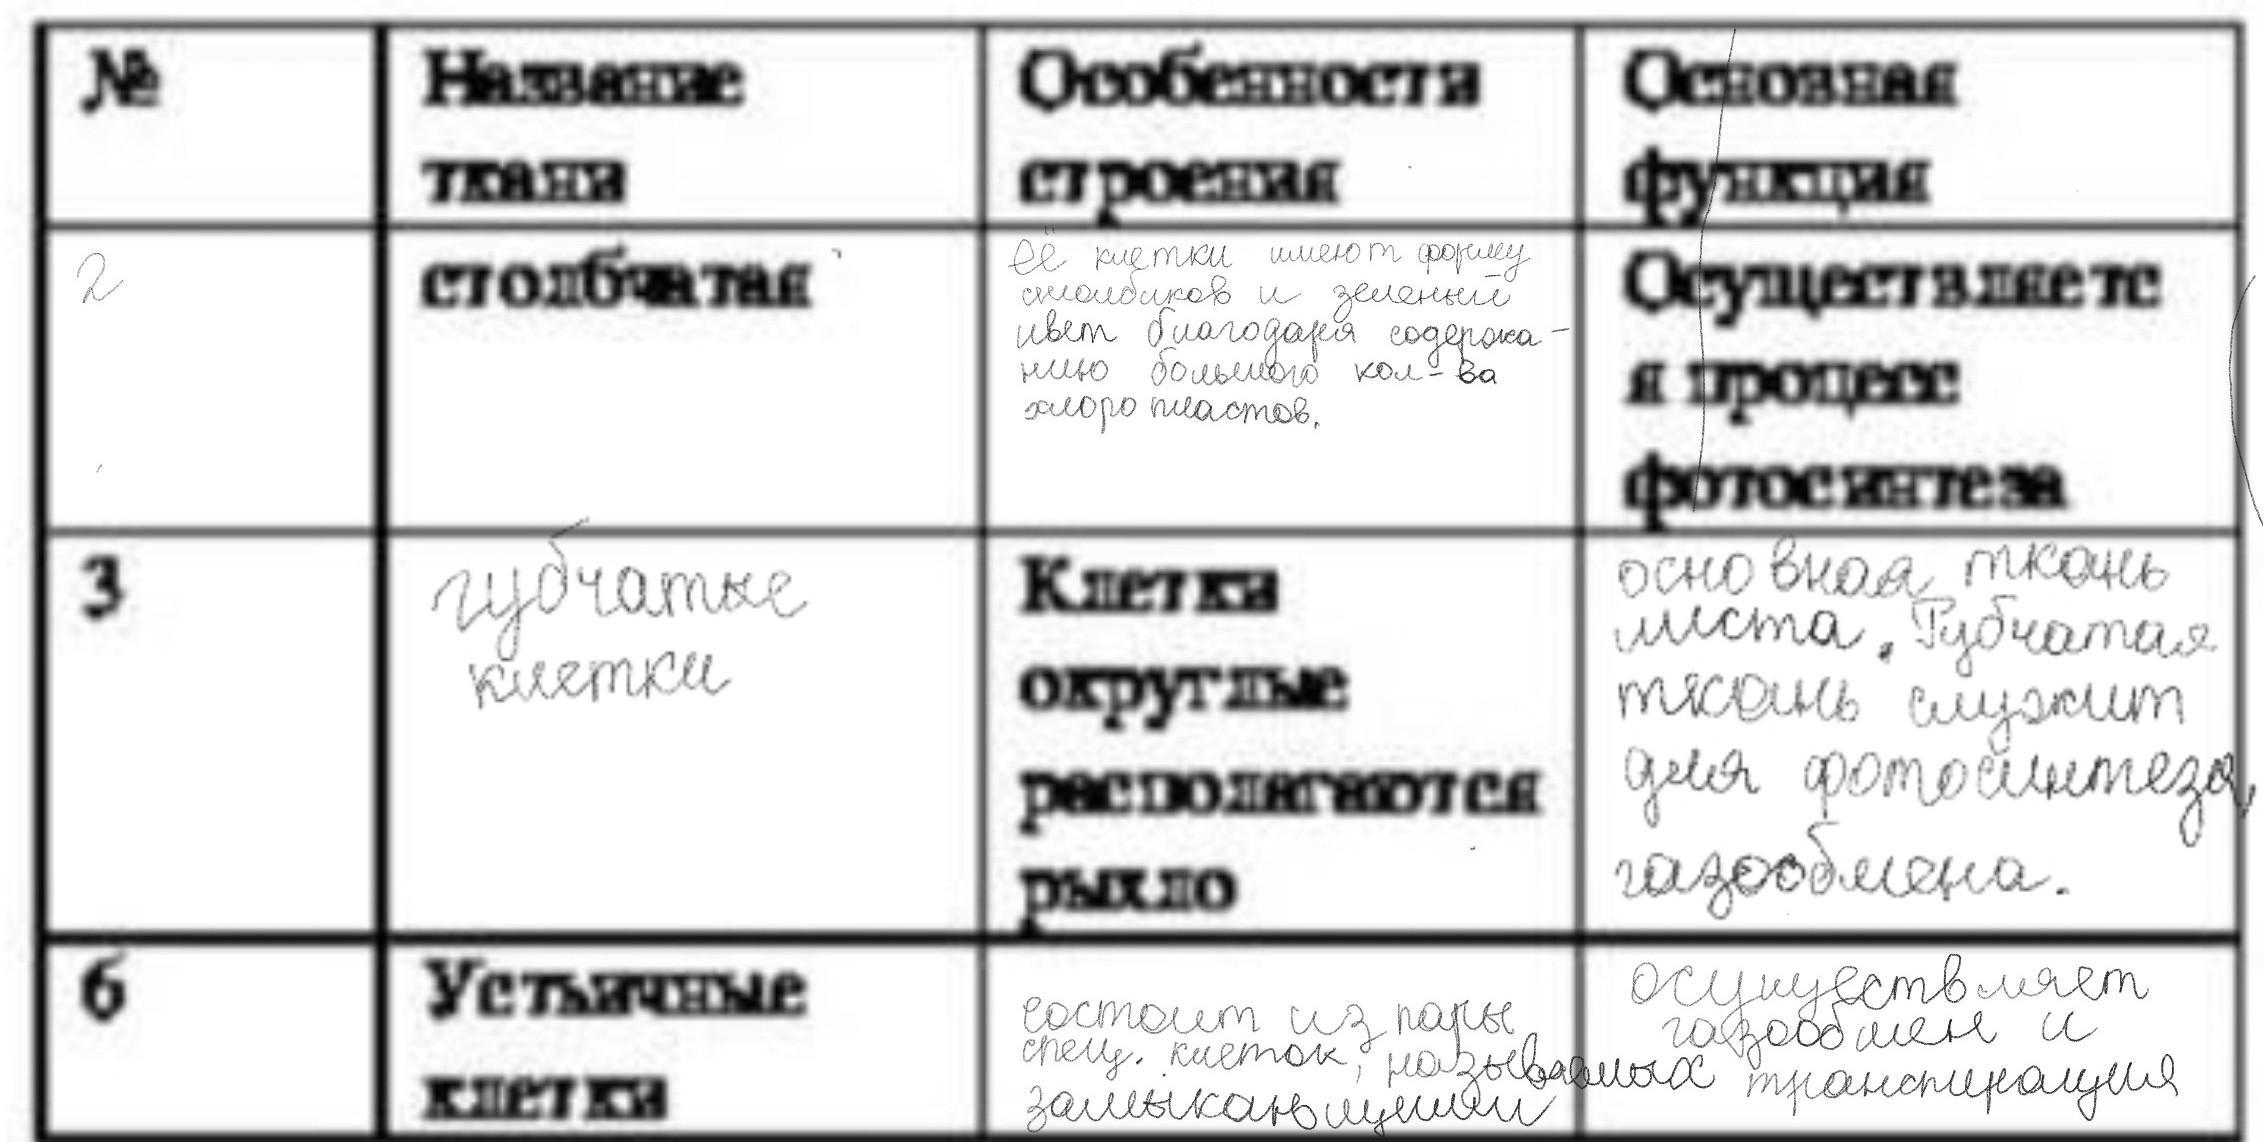 №
Название
ткани
Особенности
строения
Основная
функция
2
столбчатая
Её клетки имеют форму
столбиков и зеленый
цвет благодаря содержа-
нию большого кол-ва
хлоропластов.
Осуществляетс
я процесс
фотосинтеза
3
губчатые
клетки
Клетки
округлые
располагаются
рыхло
основная ткань
листа. Губчатая
ткань служит
для фотосинтеза,
газообмена.
6
Устьичные
клетки
состоит из пары
спец. клеток, называемых
осуществляет
газообмен и
транспирация